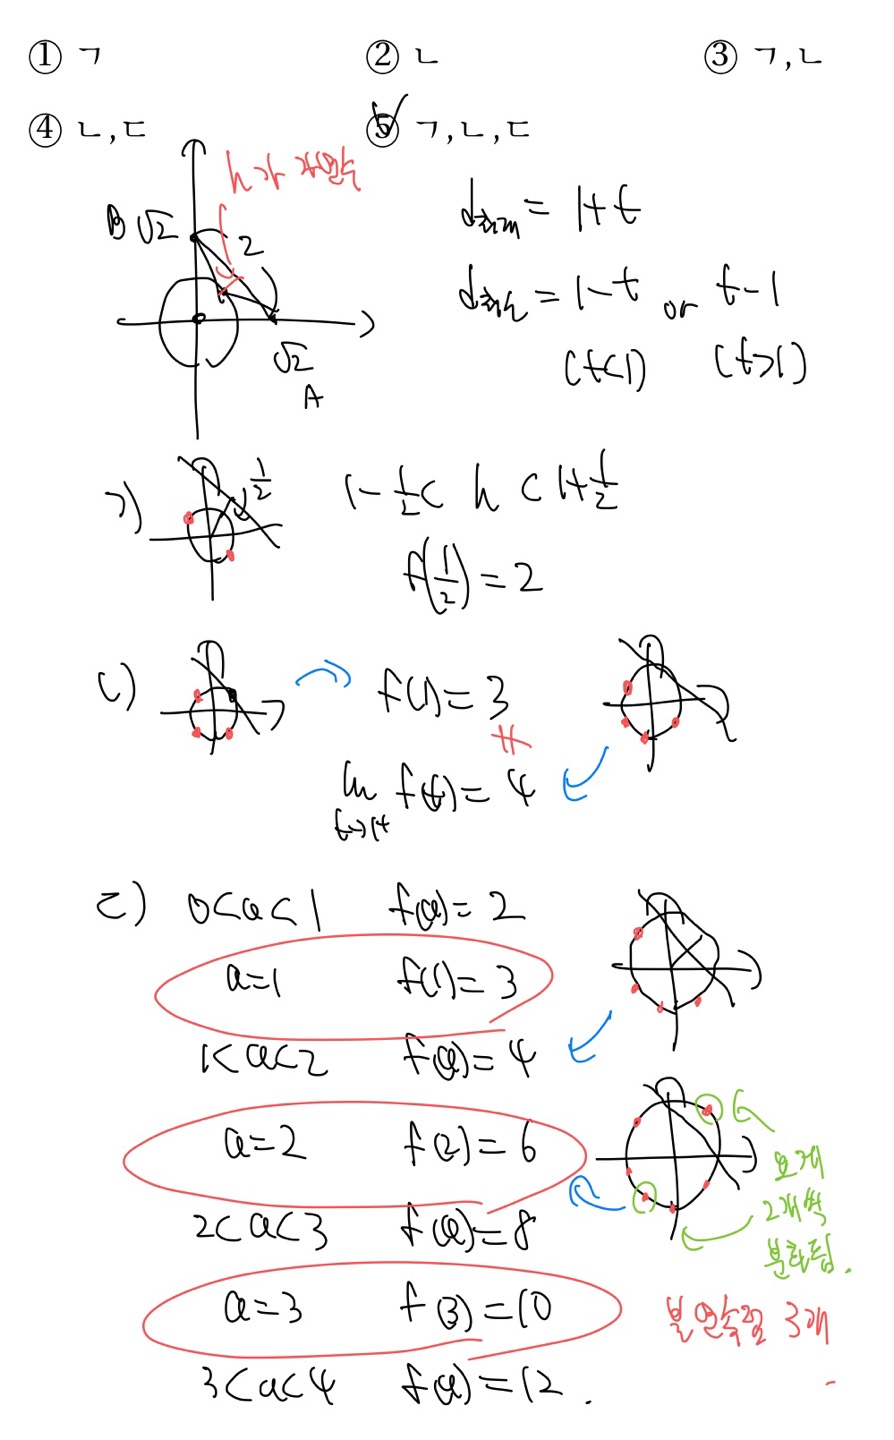 ① ㄱ ② ㄴ ③ ㄱ,ㄴ
④ ㄴ,ㄷ ⑤ ㄱ,ㄴ,ㄷ
h가 자연수
B √2 2
d최대 = 1+t
d최소 = 1-t or t-1
(t<1) (t>1)
√2
A
ㄱ) 1/2 1-1/2 < h < 1+1/2
f(1/2) = 2
ㄴ) f(1) = 3
lim t→1+ f(t) = 4
ㄷ) 0<a<1 f(a) = 2
a=1 f(1) = 3
1<a<2 f(a) = 4
a=2 f(2) = 6
2<a<3 f(a) = 8
a=3 f(3) = 10
3<a<4 f(a) = 12 .
2개씩
분화됨.
불연속점 3개